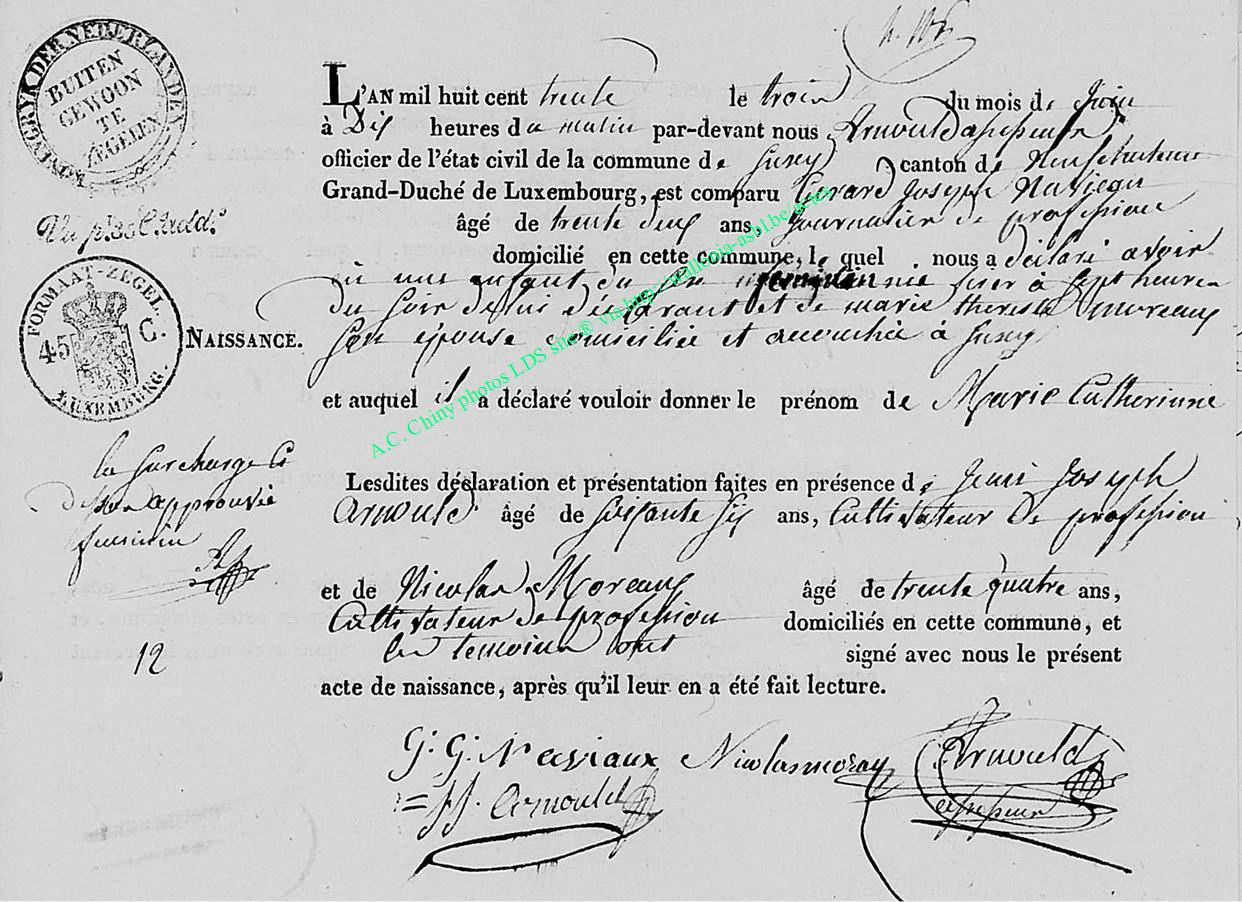 KONINGRYK DER NEDERLANDEN
BUITEN
GEWOON
TE
ZEGELEN
FORMAAT-ZEGEL.
45 C.
LUXEMBURG.
L'AN mil huit cent trente le trois du mois de Juin
à Dix heures du matin par-devant nous Arnould assesseur
officier de l'état civil de la commune de Suxy canton de Neufchateau
Grand-Duché de Luxembourg, est comparu Gerard Joseph
âgé de trente deux ans, Journalier de profession
domicilié en cette commune, le quel nous a déclaré avoir
eu une enfant du sexe feminin née hier à sept heures
du soir de lui déclarant et de marie therese moreaux
NAISSANCE. son épouse domiciliée et accouchée à Suxy
et auquel il a déclaré vouloir donner le prénom de Marie Catherinne
la surcharge ci
dessus approuvée
feminin
Lesdites déclaration et présentation faites en présence de Jean Joseph
Arnould âgé de soixante six ans, Cultivateur de profession
et de Nicolas Moreaux âgé de trente quatre ans,
Cultivateur de profession domiciliés en cette commune, et
les temoins ont signé avec nous le présent
12
acte de naissance, après qu'il leur en a été fait lecture.
G. G. Naviaux Nicolas moray Arnould
J J. Arnould assesseur
A.C. Chiny photos LDS site® via http://wallonia-asbl.be/actes